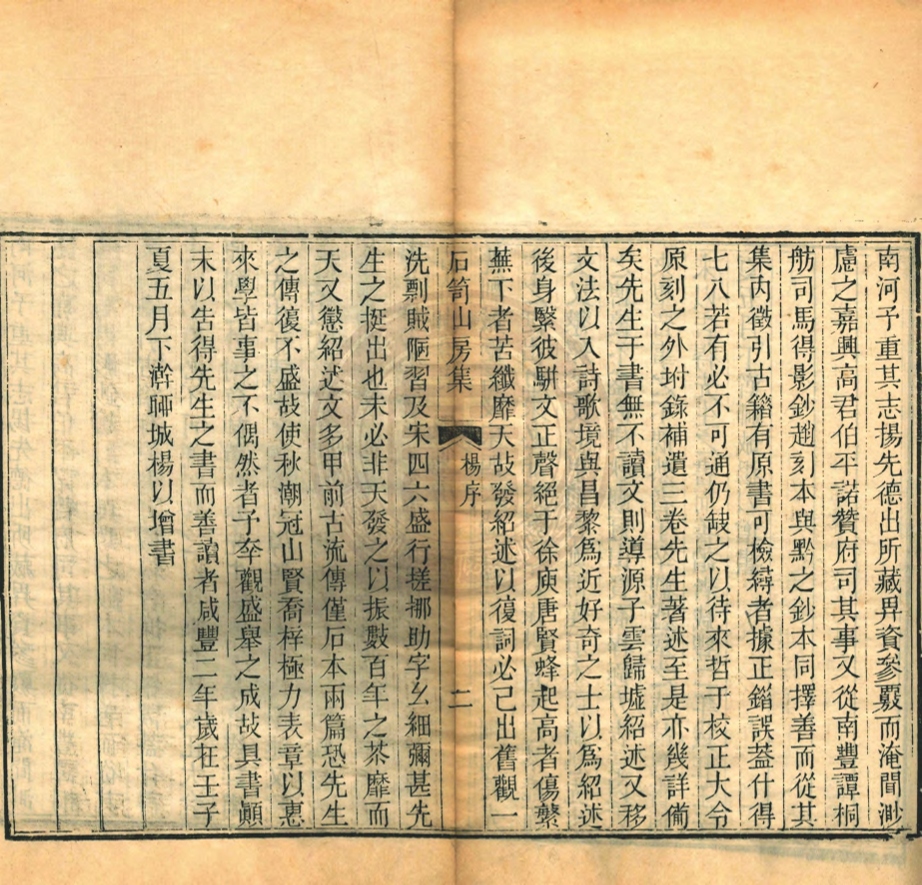 南河予重其志揚先德出所藏畀資參覈而淹間渺
慮之嘉興高君伯平諾贊府司其事又從南豐譚桐
舫司馬得影鈔趙刻本與黔之鈔本同擇善而從其
集內徵引古籍有原書可檢繙者據正錙誤葢什得
七八若有必不可通仍缺之以待來哲于校正大令
原刻之外坿錄補遺三卷先生著述至是亦幾詳僃
矣先生于書無不讀文則導源子雲歸墟紹述又移
文法以入詩歌境與昌黎爲近好奇之士以爲紹述
後身繄彼駢文正聲絕于徐庾唐賢蜂起高者傷縏
蕪下者苦纖靡天故發紹述以復詞必己出舊觀一
石笥山房集
楊序
二
洗剽賊陋習及宋四六盛行搓挪助字幺細彌甚先
生之挺出也未必非天發之以振數百年之茶靡而
天又懲紹述文多甲前古流傳僅石本兩篇恐先生
之傳復不盛故使秋潮冠山賢喬梓極力表章以惠
來學皆事之不偶然者予幸觀盛舉之成故具書顚
末以告得先生之書而善讀者咸豐二年歲在壬子
夏五月下澣聊城楊以增書